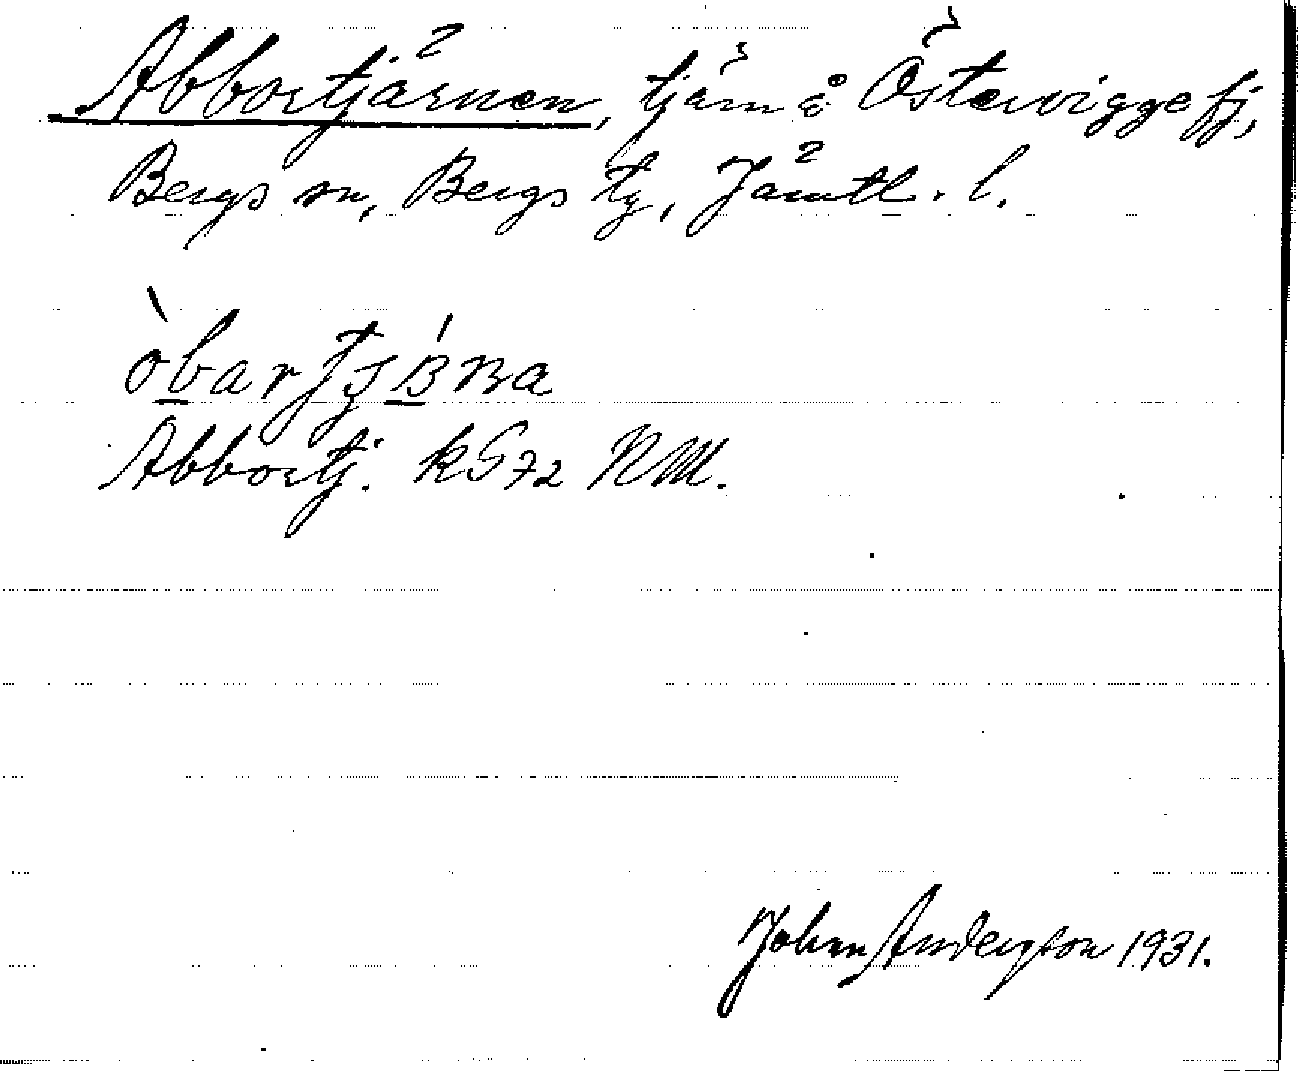 Abbortjärnen, tjärn å Östervigge fj,
Bergs sn, Bergs tg, Jämtl. l.
Abbortj. kG72 NM.
Johan Anderson 1931.